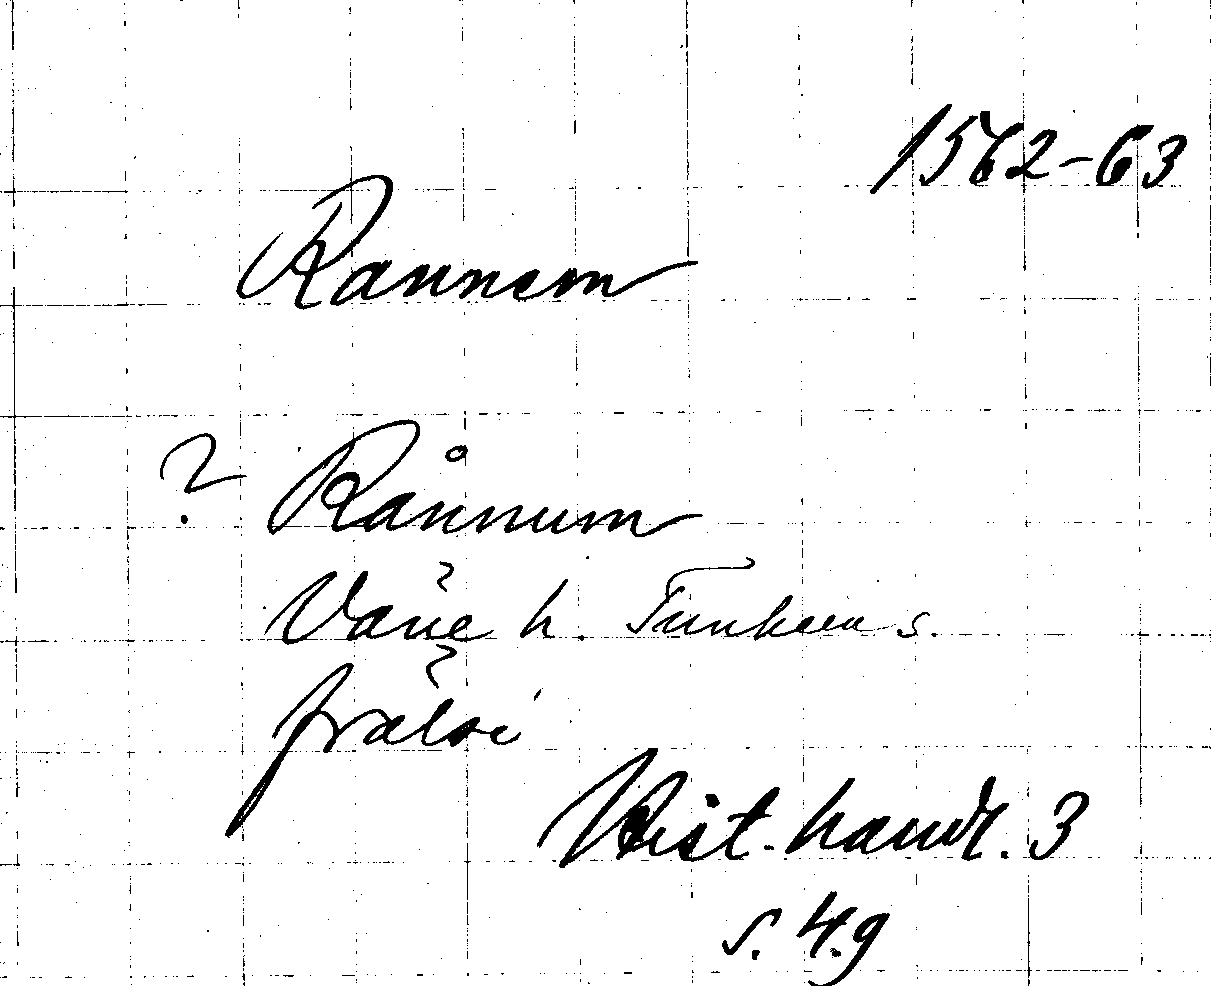 1562-63
Rannem
? Rånnum
Väne h. Tunhem s.
frälse
Hist. handl. 3
s. 49